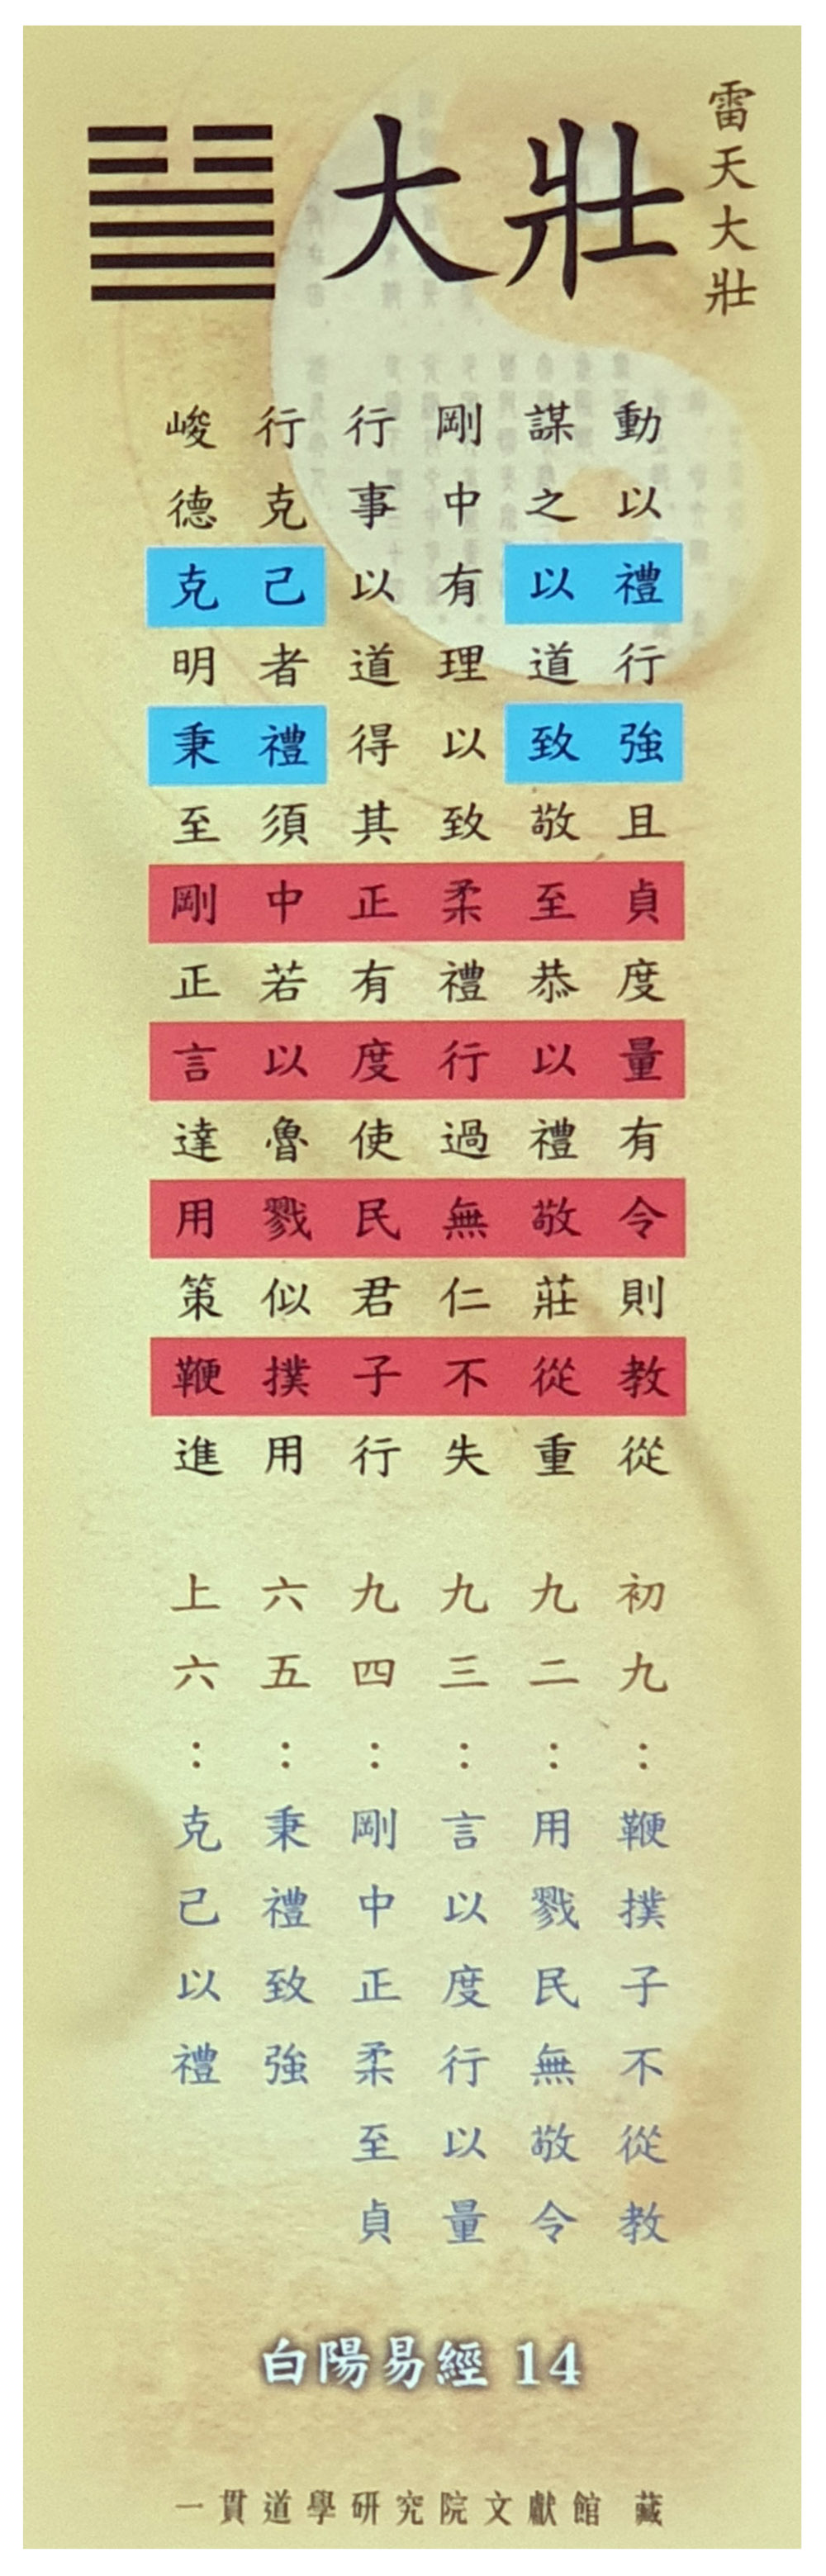 雷天大壯
大壯
動以禮行強且貞度量有令則教從
謀之以道致敬至恭以禮敬莊從重
剛中有理以致柔禮行過無仁不失
行事以道得其正有度使民君子行
行克己者禮須中若以魯戮似撲用
峻德克明秉至剛正言達用策鞭進
初九：鞭撲子不從教
九二：用戮民無敬令
九三：言以度行以量
九四：剛中正柔至貞
六五：秉禮致強
上六：克己以禮
白陽易經 14
一貫道學研究院文獻館 藏